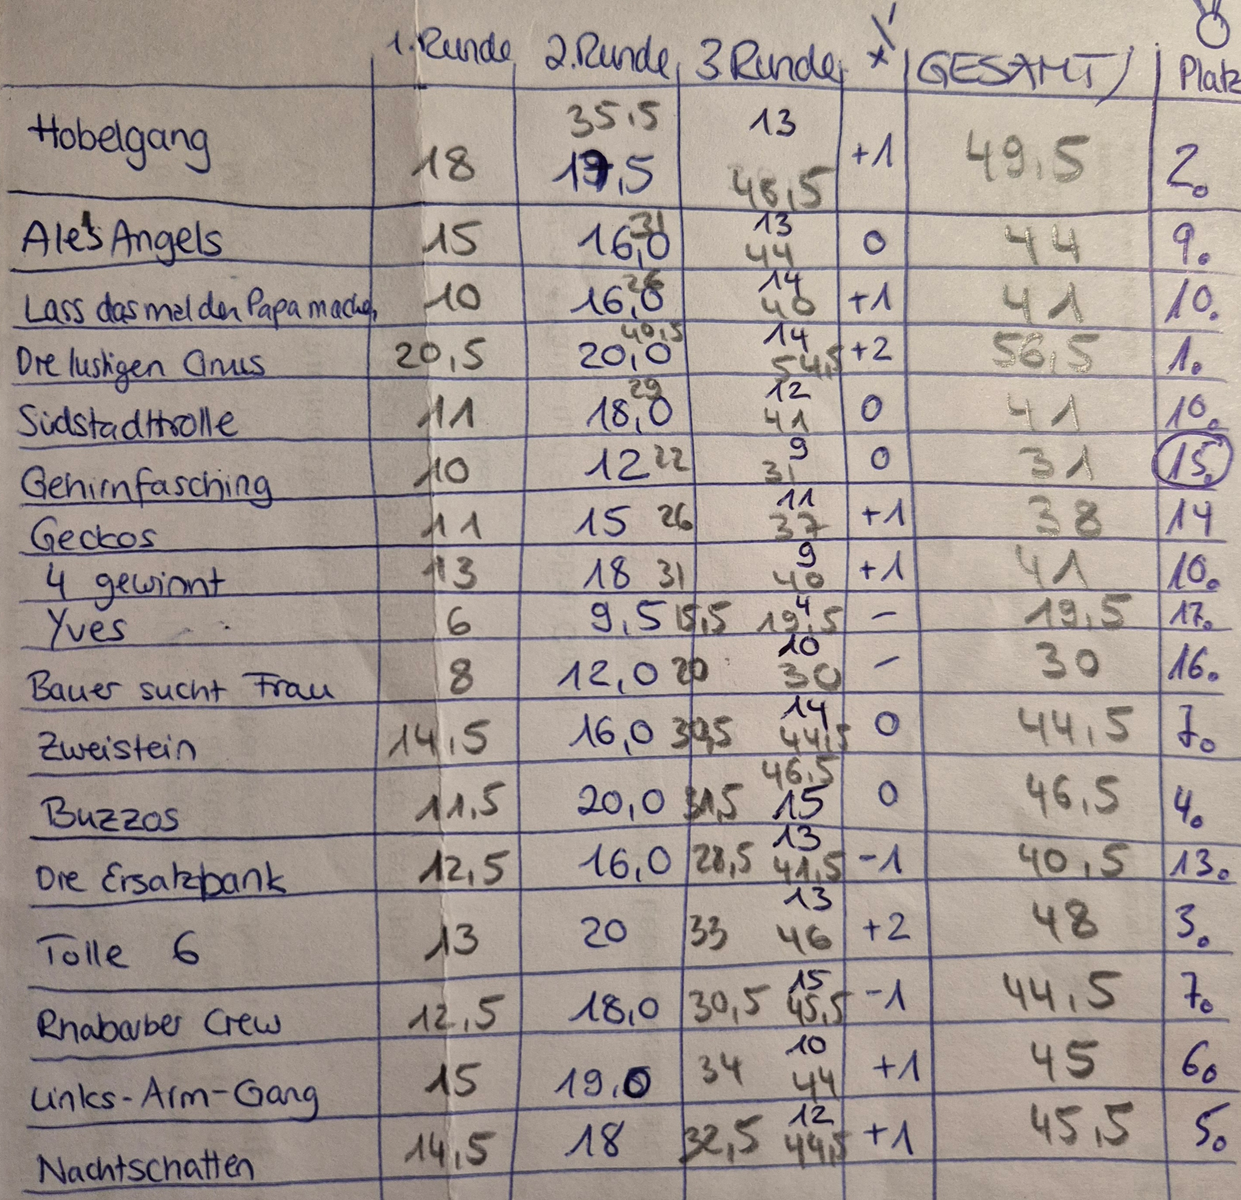 1. Runde 2. Runde 3 Runde + GESAMT Platz
35,5 13
Hobelgang 18 17,5 48,5 +1 49,5 2.
Ale's Angels 15 16,0 31 13 44 0 44 9.
Lass das mal den Papa machen 10 16,0 26 14 40 +1 41 10.
Die lustigen Gnus 20,5 20,0 40,5 14 54,5 +2 56,5 1.
Südstadttrolle 11 18,0 29 12 41 0 41 10.
Gehirnfasching 10 12 22 9 31 0 31 15.
Geckos 11 15 26 11 37 +1 38 14
4 gewinnt 13 18 31 9 40 +1 41 10.
Yves 6 9,5 15,5 4 19,5 – 19,5 17.
Bauer sucht Frau 8 12,0 20 10 30 – 30 16.
Zweistein 14,5 16,0 30,5 14 44,5 0 44,5 7.
Buzzos 11,5 20,0 31,5 46,5 15 0 46,5 4.
Die Ersatzbank 12,5 16,0 28,5 13 41,5 -1 40,5 13.
Tolle 6 13 20 33 13 46 +2 48 3.
Rhabarber Crew 12,5 18,0 30,5 15 45,5 -1 44,5 7.
Links-Arm-Gang 15 19,0 34 10 44 +1 45 6.
Nachtschatten 14,5 18 32,5 12 44,5 +1 45,5 5.